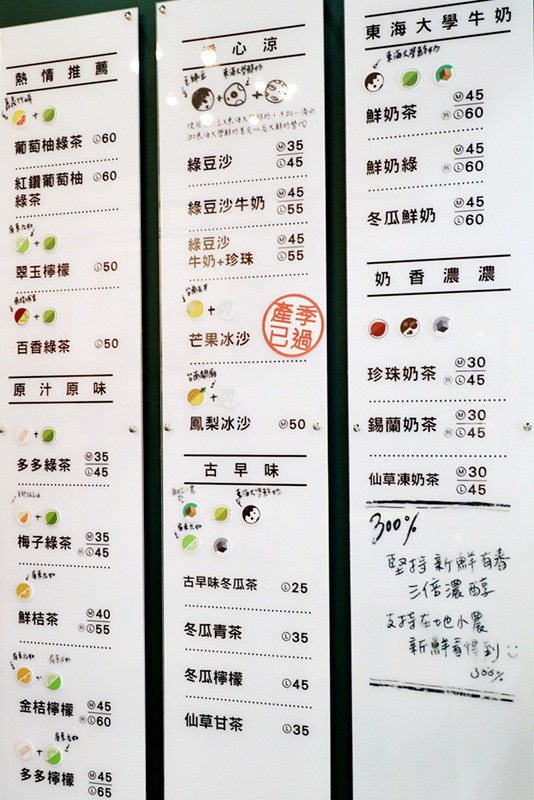 熱情推薦
葡萄柚綠茶 Ⓛ60
紅鑽葡萄柚 Ⓛ60
綠茶
翠玉檸檬 Ⓛ50
百香綠茶 Ⓛ50
原汁原味
多多綠茶 Ⓜ35
Ⓛ45
梅子綠茶 Ⓜ35
Ⓛ45
鮮桔茶 Ⓜ40
Ⓛ55
金桔檸檬 Ⓜ45
Ⓛ60
多多檸檬 Ⓜ45
Ⓛ65
心涼
東海大學鮮奶
綠豆沙 Ⓜ35
Ⓛ45
綠豆沙牛奶 Ⓜ45
Ⓛ55
綠豆沙 Ⓜ45
牛奶+珍珠 Ⓛ55
芒果冰沙
產季
已過
鳳梨冰沙 Ⓜ50
古早味
東海大學鮮奶
古早味冬瓜茶 Ⓛ25
冬瓜青茶 Ⓛ35
冬瓜檸檬 Ⓛ45
仙草甘茶 Ⓛ35
東海大學牛奶
東海大學鮮奶
鮮奶茶 Ⓜ45
Ⓛ60
鮮奶綠 Ⓜ45
Ⓛ60
冬瓜鮮奶 Ⓜ45
Ⓛ60
奶香濃濃
珍珠奶茶 Ⓜ30
Ⓛ45
錫蘭奶茶 Ⓜ30
Ⓛ45
仙草凍奶茶 Ⓜ30
Ⓛ45
300%
堅持新鮮青春
三倍濃醇
支持在地小農
新鮮看得到
300%